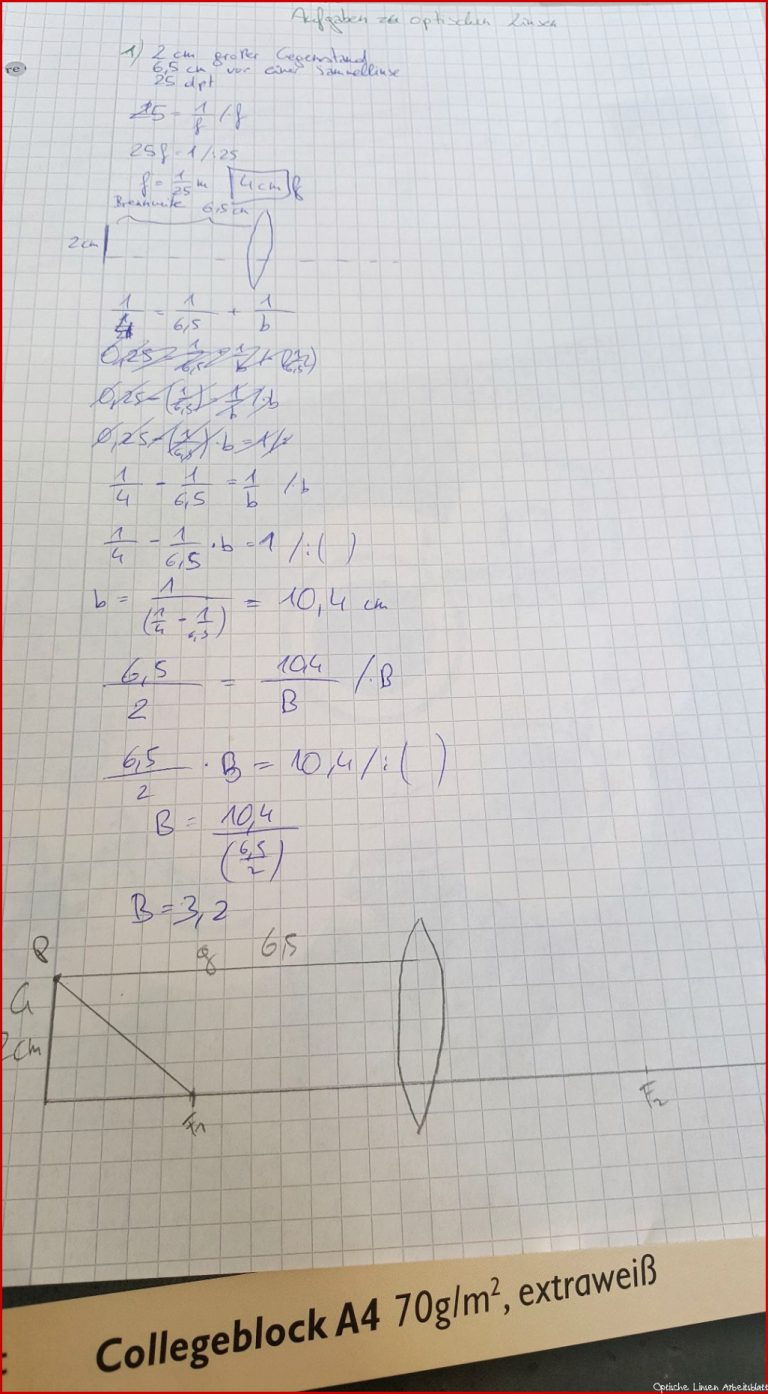 Aufgaben zu optischen Linsen
re
1) 2 cm großer Gegenstand
6,5 cm vor einer Sammellinse
25 dpt
25 = 1/f /·f
25f = 1 /:25
f = 1/25 m 4cm f
Brennweite 6,5 cm
2 cm
1/4 = 1/6,5 + 1/b
1/4 - 1/6,5 = 1/b /·b
1/4 - 1/6,5 · b = 1 /:( )
b = 1/(1/4 - 1/6,5) = 10,4 cm
6,5/2 = 10,4/B /·B
6,5/2 · B = 10,4 /:( )
B = 10,4/(6,5/2)
B = 3,2
P g 6,5
G
2cm
F1 F2
Collegeblock A4 70g/m², extraweiß
Optische Linsen Arbeitsblatt